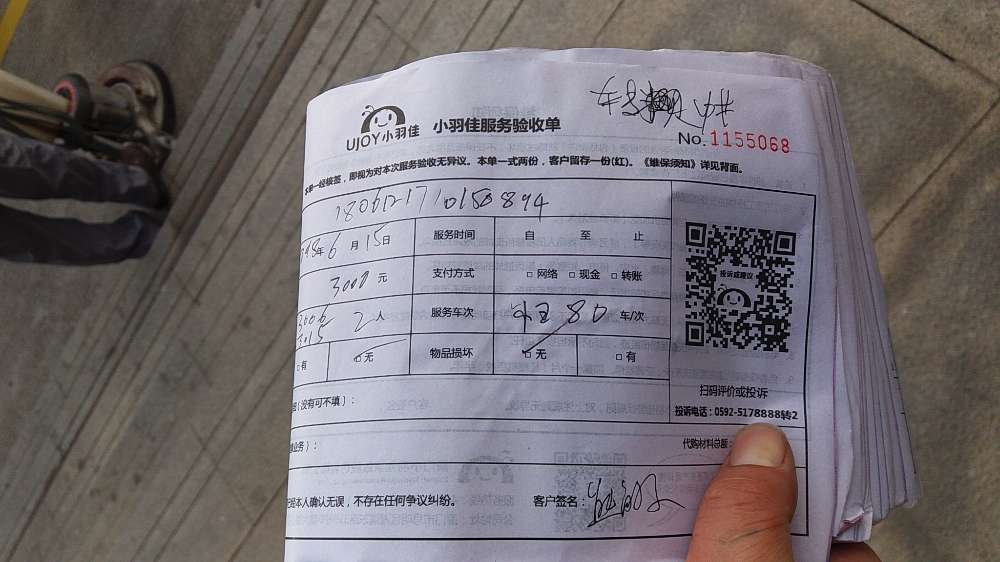 UJOY小羽佳 小羽佳服务验收单
No.1155068
单一经核签，即视为对本次服务验收无异议。本单一式两份，客户留存一份(红)。《维保须知》详见背面。
年6月15日 服务时间 自 至 止
3000元 支付方式 □网络 □现金 □转账
投诉或建议
3006
3015 2人 服务车次 80 车/次
□有 □无 物品损坏 □无 □有
扫码评价或投诉
(没有可不填)：
投诉电话：0592-5178888转2
业务)：
代购材料总额：
本人确认无误，不存在任何争议纠纷。 客户签名：